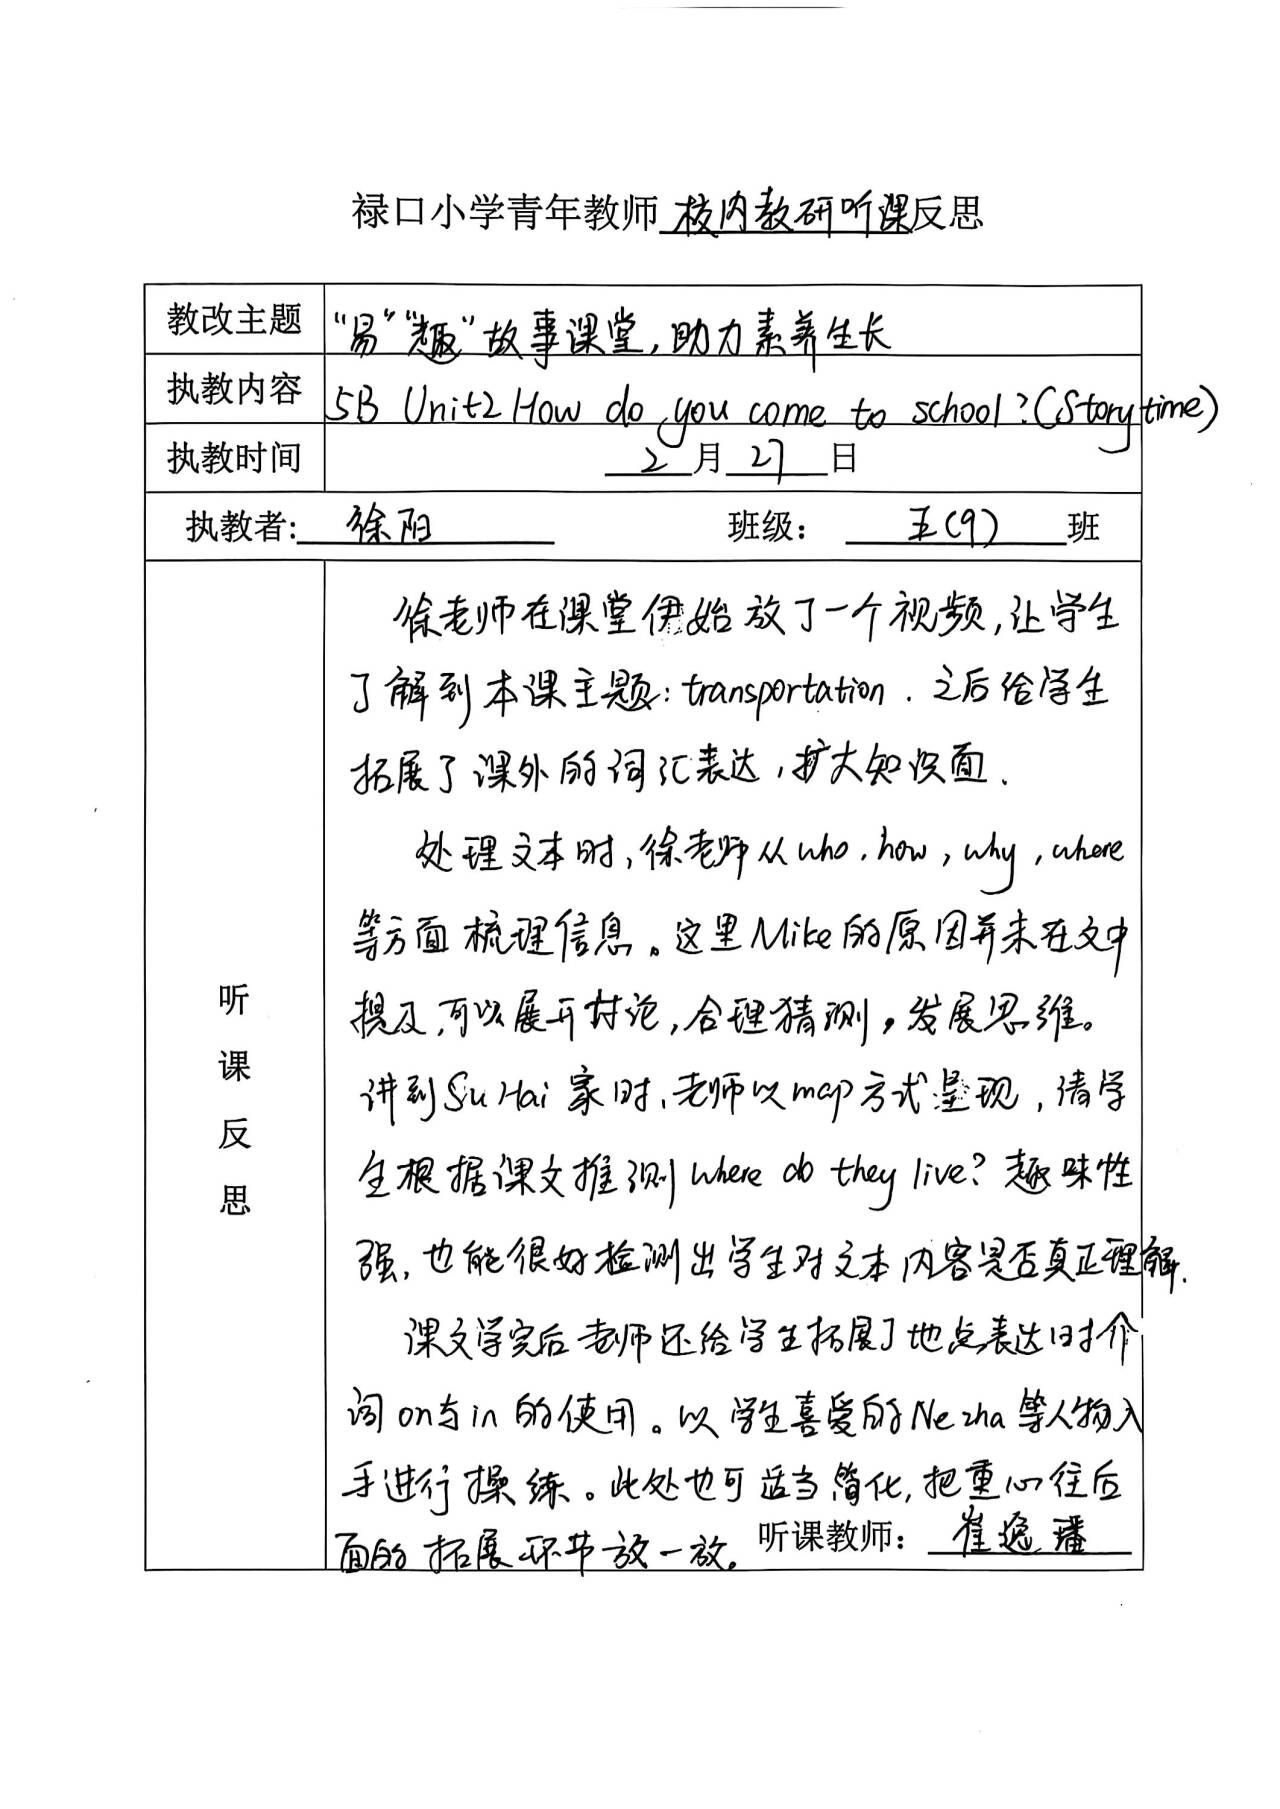 禄口小学青年教师 校内教研听课反思
教改主题 “易”“趣”故事课堂,助力素养生长
执教内容 5B Unit2 How do you come to school?(Story time)
执教时间 2月27日
执教者: 徐阳 班级: 五(9)班
听课反思
徐老师在课堂伊始放了一个视频,让学生
了解到本课主题: transportation. 之后给学生
拓展了课外的词汇表达,扩大知识面.
处理文本时,徐老师从who, how, why, where
等方面梳理信息。这里Mike的原因并未在文中
提及,可以展开讨论,合理猜测,发展思维。
讲到Su Hai家时,老师以map方式呈现,请学
生根据课文推测where do they live? 趣味性
强,也能很好检测出学生对文本内容是否真正理解.
课文学完后老师还给学生拓展了地点表达时介
词on与in的使用。以学生喜爱的Ne zha等人物入
手进行操练。此处也可适当简化,把重心往后
面的拓展环节放一放。
听课教师: 崔逸璠